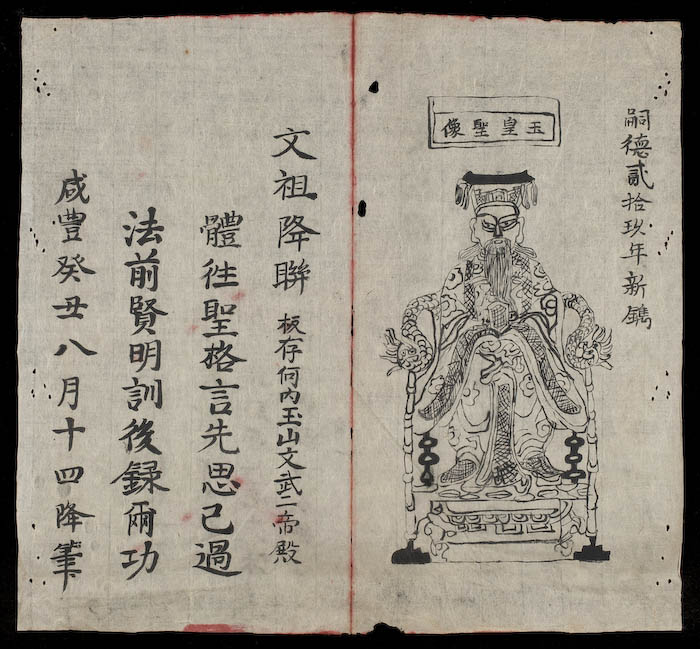 嗣德貳拾玖年新鐫
玉皇聖像
文祖降聯 板存河内玉山文武二帝殿
體往聖格言先思己過
法前賢明訓後録爾功
咸豐癸丑八月十四降筆